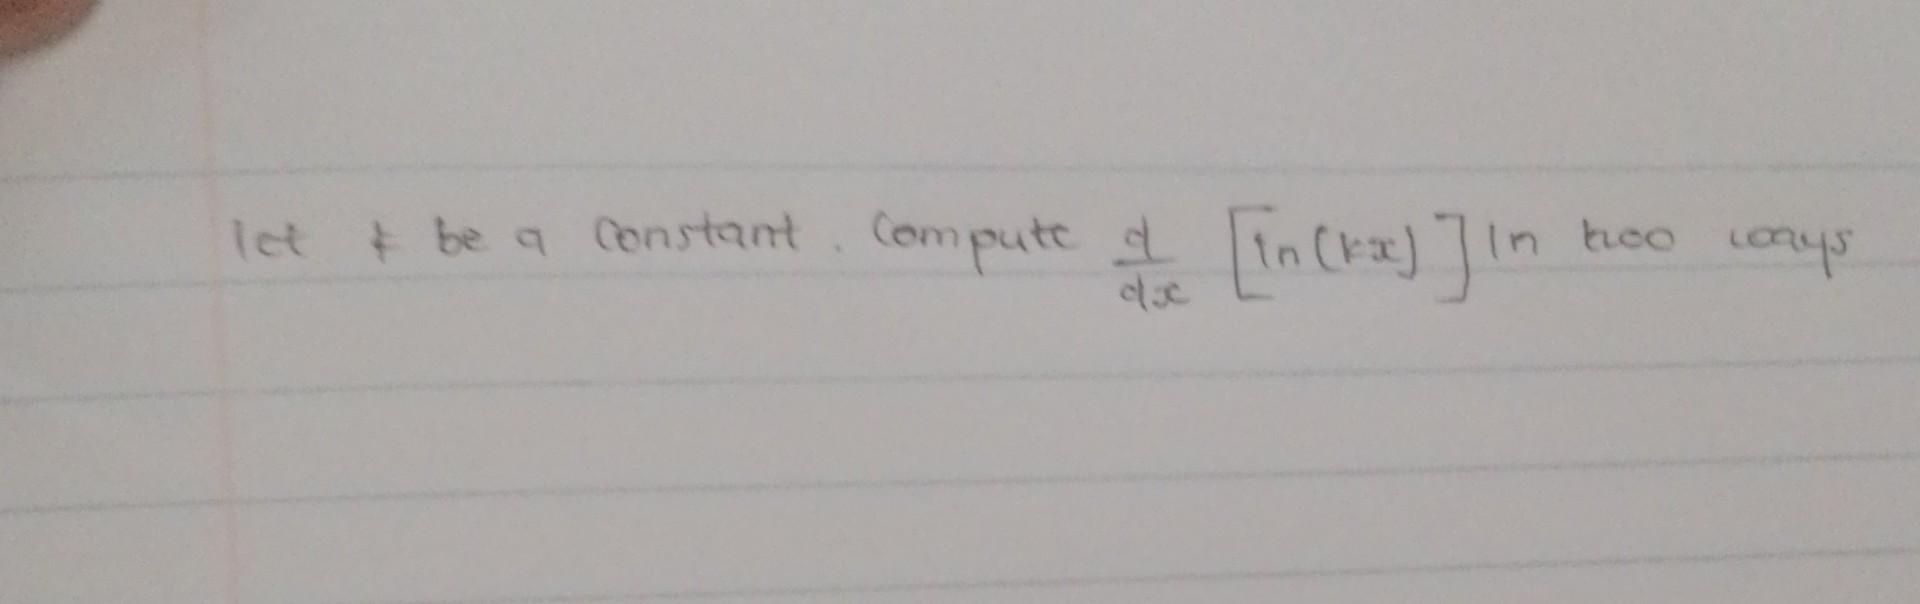 let k be a constant. Compute d/dx [ln(kx)] in two ways